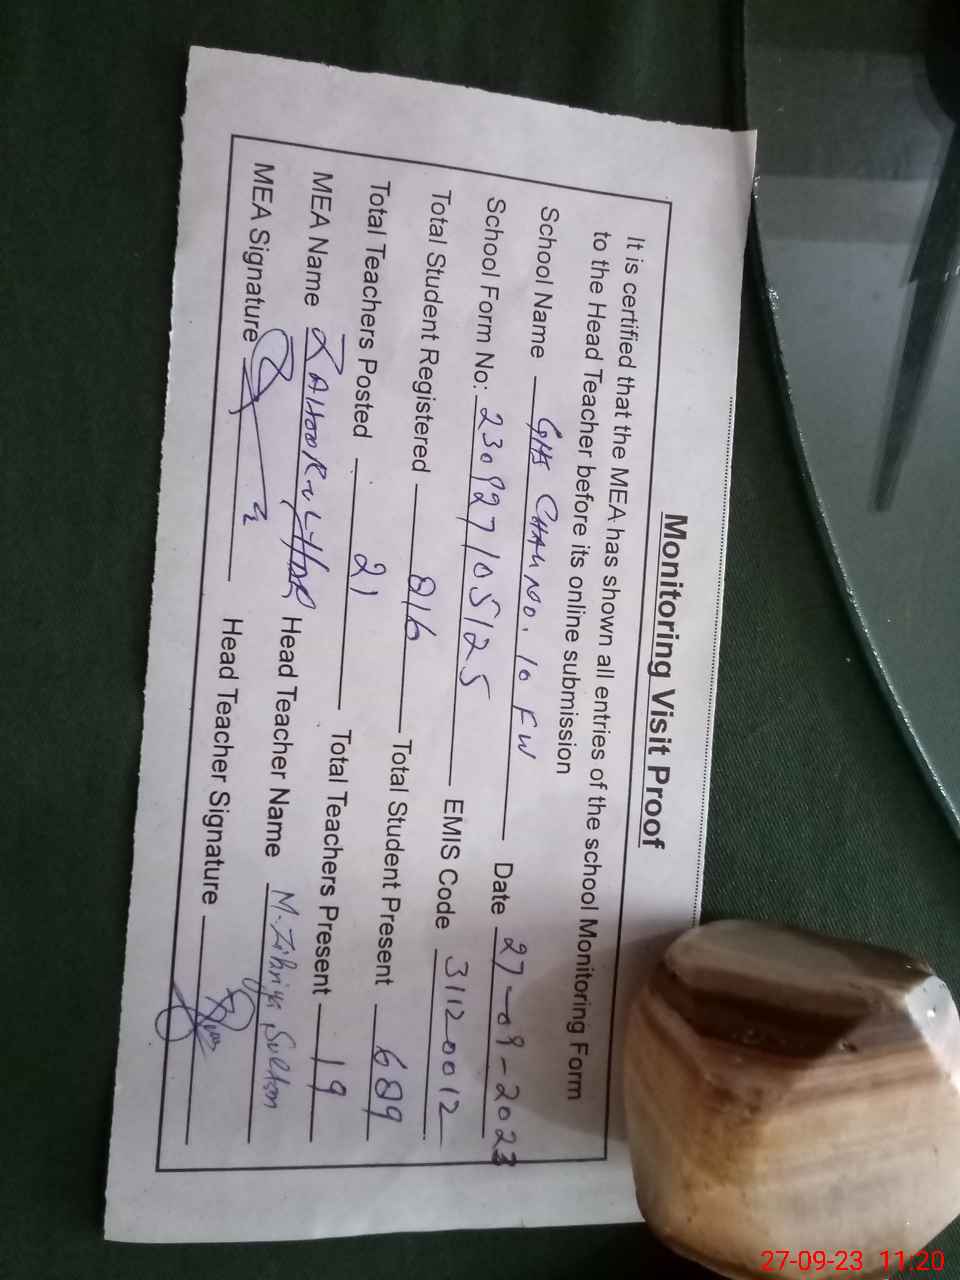 Monitoring Visit Proof
It is certified that the MEA has shown all entries of the school Monitoring Form
to the Head Teacher before its online submission
School Name GHS CHAK NO. 10 FW Date 27-09-2023
School Form No: 230927105125 EMIS Code 31120012
Total Student Registered 816 Total Student Present 689
Total Teachers Posted 21 Total Teachers Present 19
MEA Name ZAHOOR UL HAQ Head Teacher Name M. Sultan
MEA Signature Head Teacher Signature
27-09-23 11:20